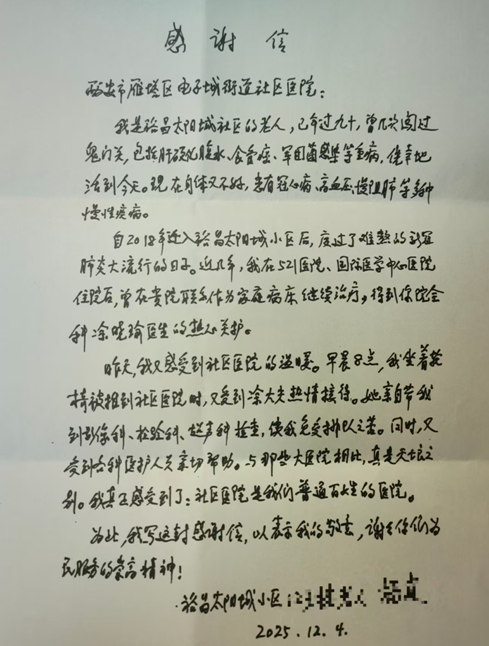 感谢信
西安市雁塔区电子城街道社区医院：
我是裕昌太阳城社区的老人，已年过九十，曾几次闯过
鬼门关，包括肝硬化腹水、食管癌、军团菌感染等重病，侥幸地
活到今天。现在身体又不好，患有冠心病、高血压、慢阻肺等多种
慢性疾病。
自2018年迁入裕昌太阳城小区后，度过了难熬的新冠
肺炎大流行的日子。近几年，我在521医院、国际医学中心医院
住院后，曾在贵院联系作为家庭病床继续治疗，得到你院全
科涂晓瑜医生的热心关护。
昨天，我又感受到社区医院的温暖。早晨8点，我坐着轮
椅被推到社区医院时，又受到涂大夫热情接待。她亲自带我
到影像科、检验科、超声科检查，使我免受排队之苦。同时，又
受到各科医护人员亲切帮助。与那些大医院相比，真是天壤之
别。我真正感受到了：社区医院是我们普通百姓的医院。
为此，我写这封感谢信，以表示我的敬意，谢谢你们为
民服务的崇高精神！
裕昌太阳城小区
2025.12.4.